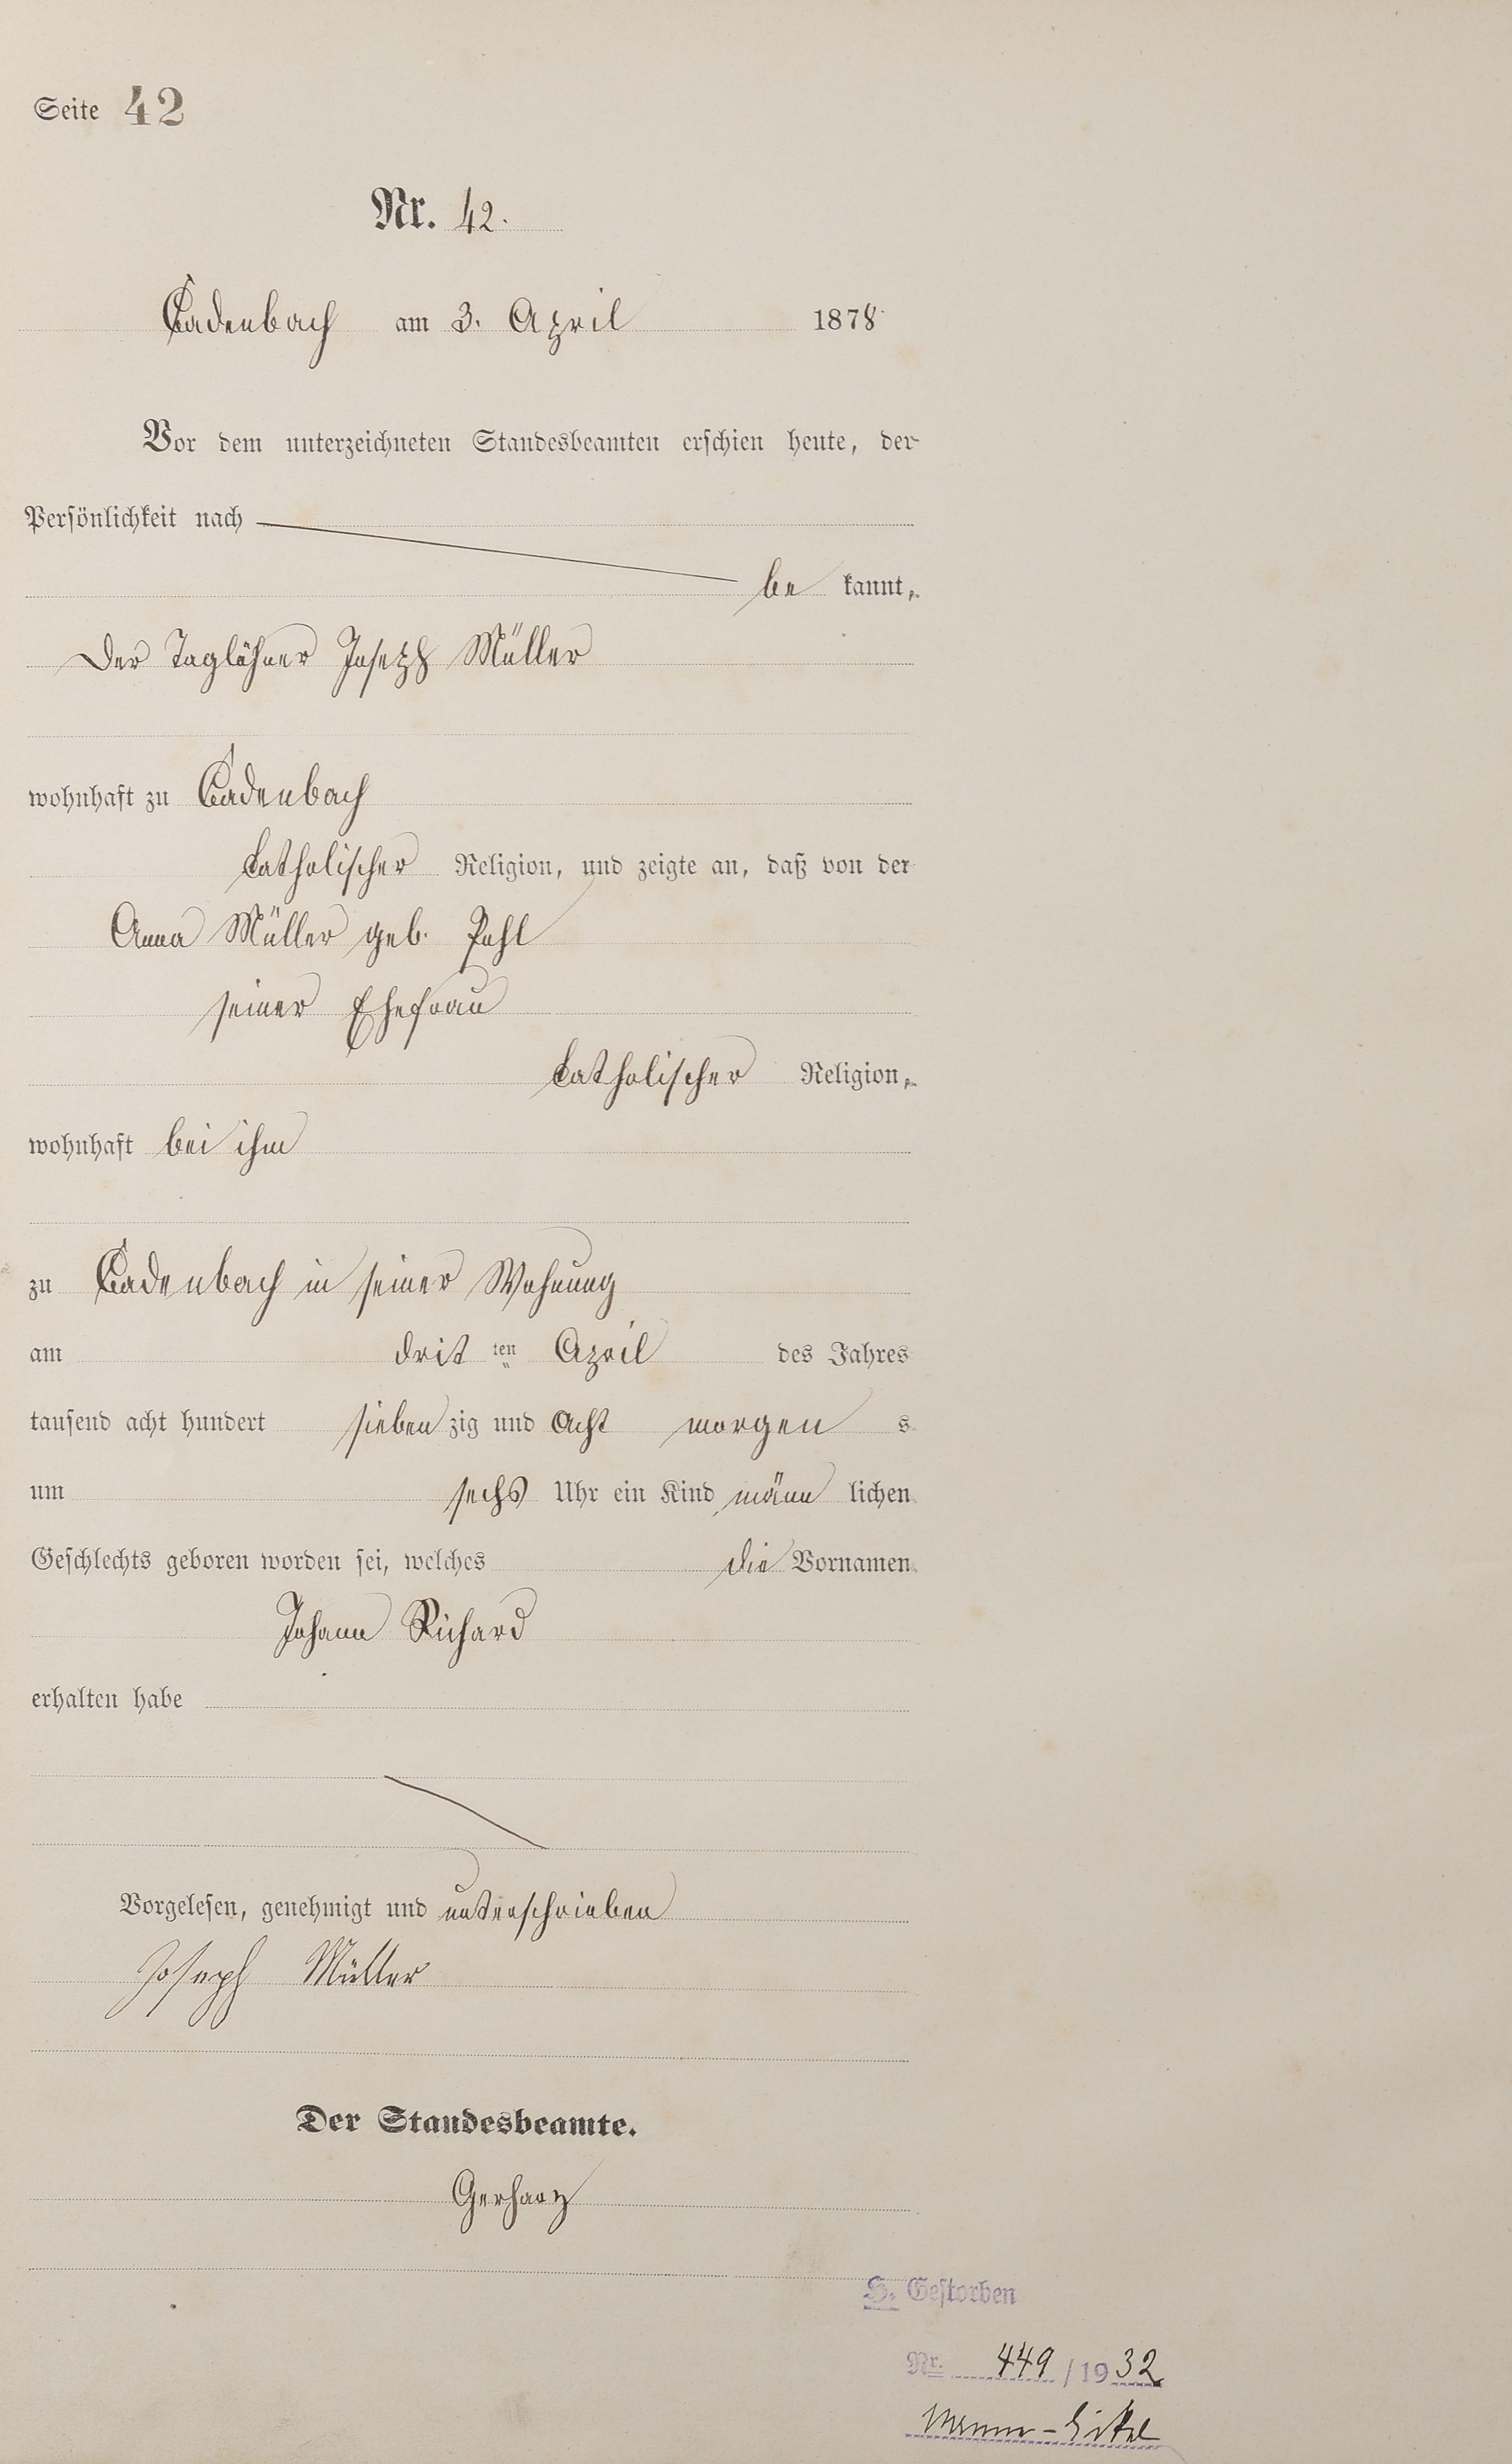 Seite 42
Nr. 42.
Cadenbach am 3. April 1878
Vor dem unterzeichneten Standesbeamten erschien heute, der
Persönlichkeit nach
be kannt,
Der Taglöhner Joseph Müller
wohnhaft zu Cadenbach
katholischer Religion, und zeigte an, daß von der
Anna Müller geb. Pehl
seiner Ehefrau
katholischer Religion,
wohnhaft bei ihm
zu Cadenbach in seiner Wohnung
am drit ten April des Jahres
tausend acht hundert sieben zig und acht morgen s
um sechs Uhr ein Kind männ lichen
Geschlechts geboren worden sei, welches die Vornamen
Johann Richard
erhalten habe
Vorgelesen, genehmigt und unterschrieben
Joseph Müller
Der Standesbeamte.
Gerharz
H. Gestorben
Nr. 449 / 1932
Wanne-Eickel